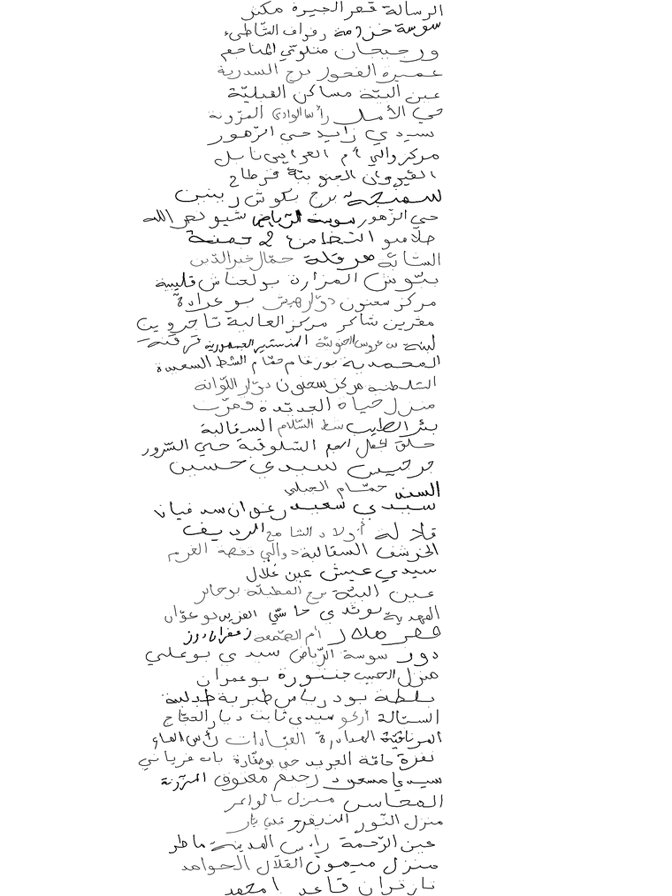 الرسالة قصر الجيرة مكنين
سوسة خزامة رفراف الشاطئ
ورجيجان منلوتي المناجم
عميرة الفحور برج السدرية
عين البنّة مساكن القبليّة
حي الأمل رأس الوادي المزّونة
سيدي زايد حي الزّهور
مركز والي أم العرايس نابل
القيروان الجنوبيّة قرطاج
سمنجة برج بكوش زرمدين
حي الزّهور سوسة الرّياض شبو نصر الله
صلامبو التضامن 2 جمنة
الستاغ هرقلة حمّال خير الدّين
بنّوش المزارة بولعناش قليبية
مركز سعنون دوّار هيش بوعرادة
مقرين شاكر مركز العالية تاجروين
لبنة بن عروس الجنوبيّة المنستير الجمهورية قرقنة
المحمدية بورغام حمّام الشط السعيدة
الشلطنية مركز سحنون دوّار اللّواتة
منزل حياة الجديدة ومرّت
بئر الطيب شط السّلام السقالبة
حلق الجمل السلوقية حي السّرور
جرجيس سيدي حسين
السند حمّام الجبلي
سيدي سعيد رغوان سد فيانا
قلالة أولاد الشامخ الرديف
الخرشف السقالبة دوالي قفصة القرم
سيدي عيش عين غلال
عين البنّة برج المطبلة بوجابر
المهدية بوثدي حاسي الفريد بوعوّان
قصر هلال أم الصّمعة زغفران
دور سوسة الرّياض سيدي بوعلي
منزل الحبيب جنّورة بوعمران
بلطة بودرياس طبرية طبلبة
الستالة أركو سيدي ثابت ديار الحجّاج
المرناقية الصادرة القيّادات رأس الماء
نفزة حامّة الجريد حي بوصفّارة باب فرياني
سيدي مسعود رحيم معنوق المزّونة
المحاسن منزل بالواعر
منزل النّور
عين الرّحمة رأس المدينة ماطر
منزل ميمون القلاّل الحوامد
تازغران قاعد امحمد